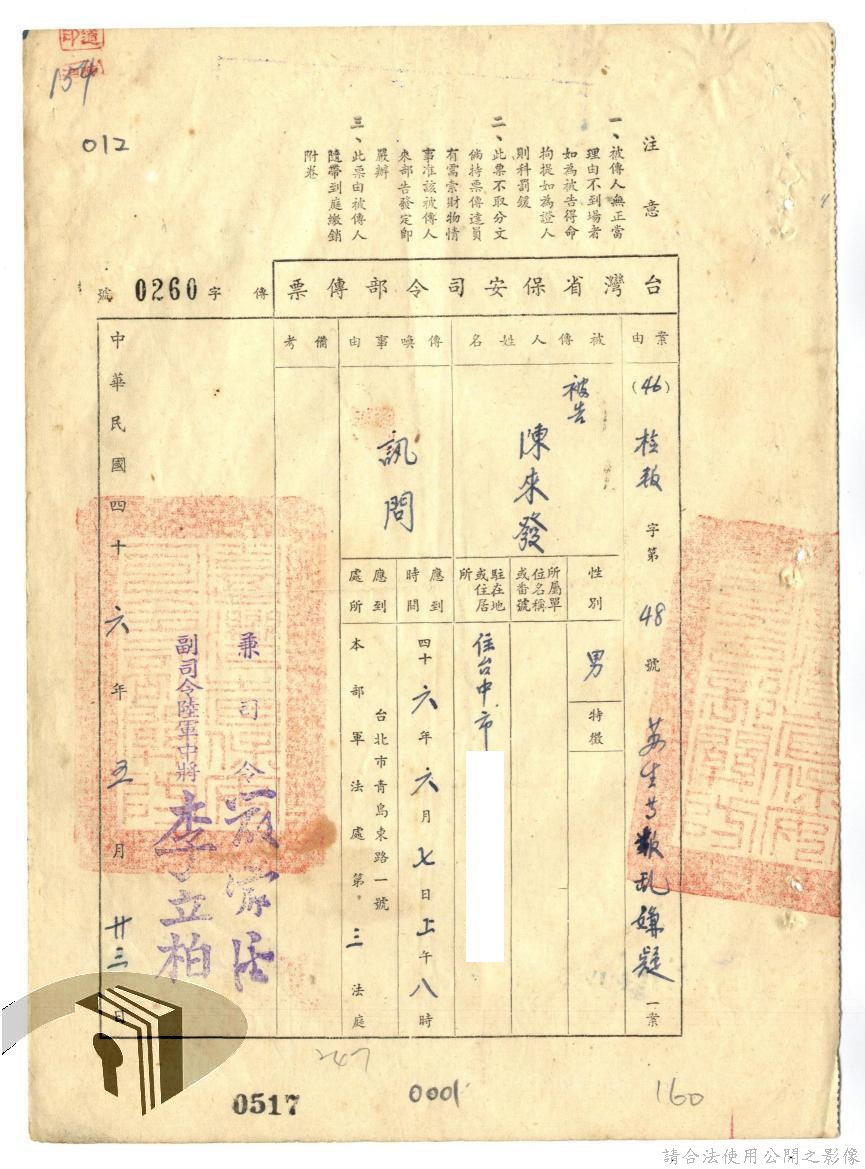 154
012
注意
一、被傳人無正當
理由不到場者
如為被告得命
拘提如為證人
則科罰鍰
二、此票不取分文
倘持票傳達員
有需索財物情
事准該被傳人
來部告發定即
嚴辦
三、此票由被傳人
隨帶到庭繳銷
附卷
台灣省保安司令部傳票
傳字0260號
案由
(46)
字第48號
叛乱嫌疑一案
被傳人姓名
被告
陳來發
性別
男
特徵
所屬單
位名稱
或番號
駐在地
或住居
所
住台中市
傳喚事由
訊問
應到
時間
四十六年六月七日上午八時
應到
處所
台北市青島東路一號
本部軍法處第三法庭
備考
兼司令
副司令陸軍中將李立柏
中華民國四十六年五月廿三日
247
0517
0001
160
請合法使用公開之影像